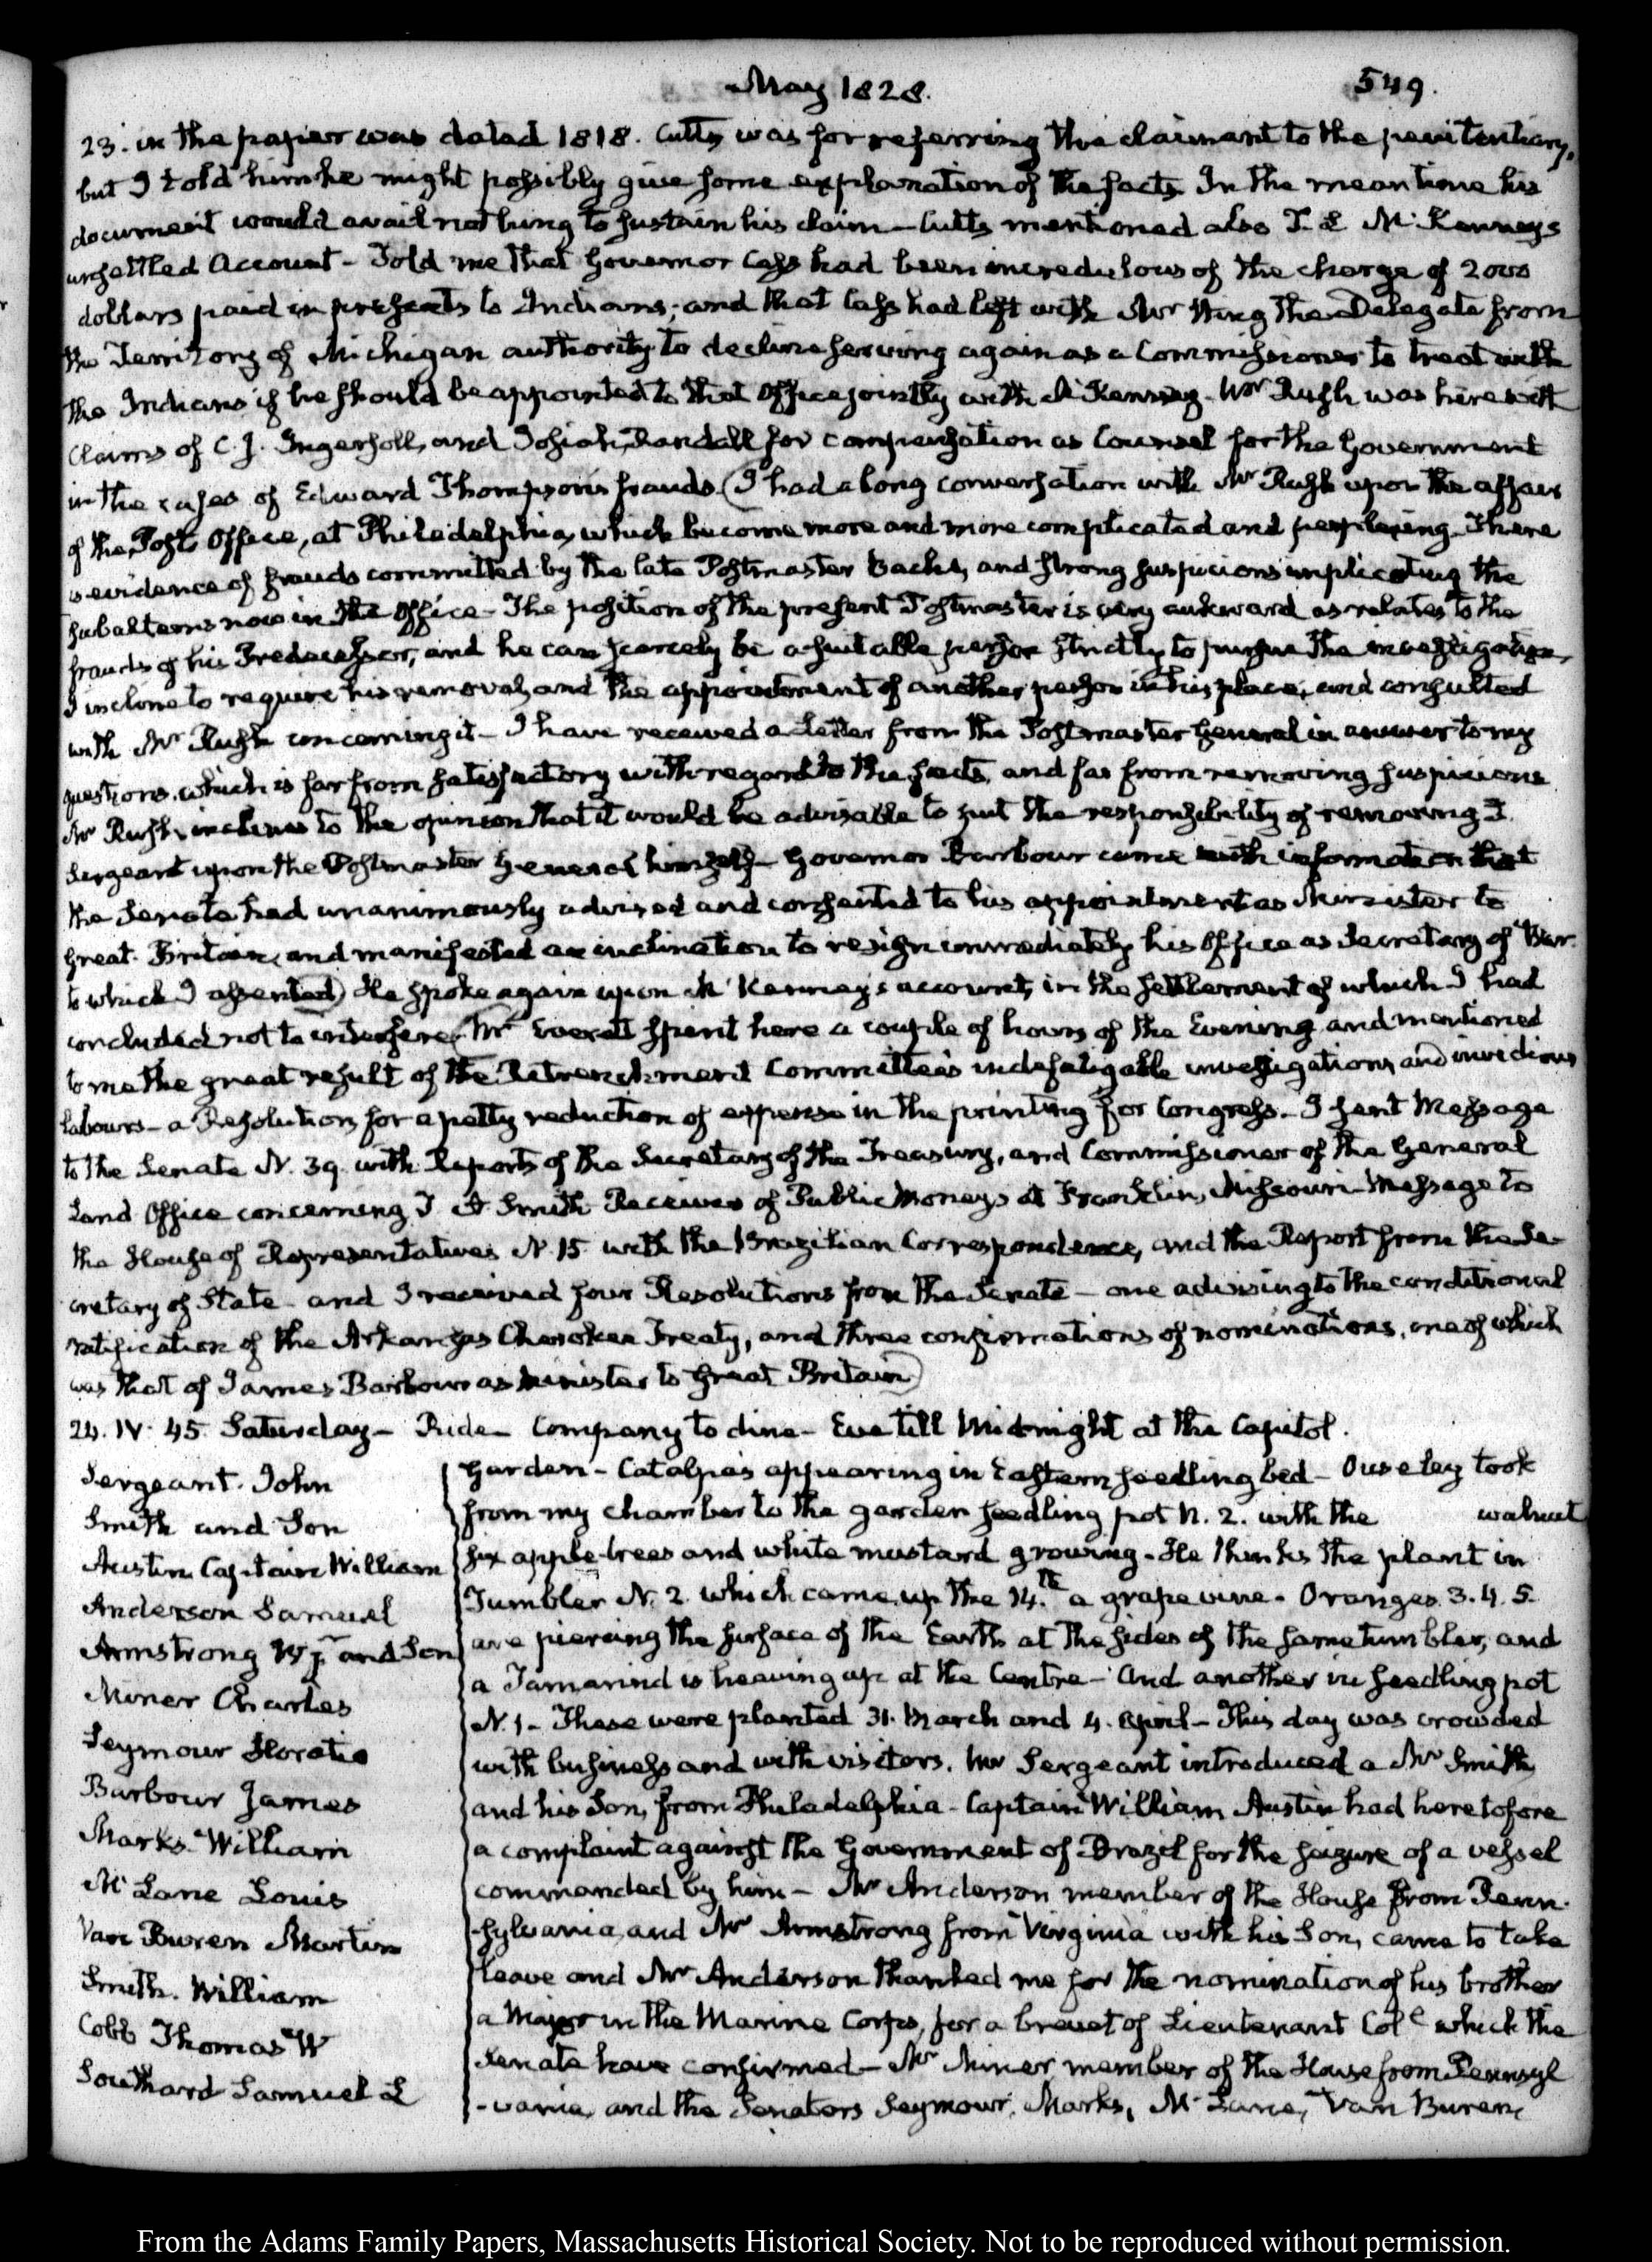 May 1828. 549.
23. in the papers was dated 1818. Cutts was for referring the claimant to the penitentiary,
but I told him he might possibly give some explanation of the facts In the mean time his
document would avail nothing to sustain his claim — Cutts mentioned also T. L. McKenney's
unsettled Account — Told me that Governor Cass had been incredulous of the charge of 2000
dollars paid in presents to Indians; and that Cass had left with Mr Wing the Delegate from
the Territory of Michigan authority to decline serving again as a Commissioner to treat with
the Indians if he should be appointed to that Office jointly with McKenney. Mr Rush was here with
Claims of C. J. Ingersoll, and Josiah Randall for compensation as Counsel for the Government
in the cases of Edward Thompson's frauds. (I had a long conversation with Mr Rush upon the affairs
of the Post Office, at Philadelphia, which become more and more complicated and perplexing. There
is evidence of frauds committed by the late Postmaster Bache, and strong suspicions implicating the
subalterns now in the Office — The position of the present Postmaster is very awkward as relates to the
frauds of his Predecessor, and he can scarcely be a suitable person strictly to pursue the investigation,
I incline to require his removal, and the appointment of another person in his place; and consulted
with Mr Rush concerning it — I have received a Letter from the Postmaster General in answer to my
questions, which is far from satisfactory with regard to the facts, and far from removing suspicions
Mr Rush inclines to the opinion that it would be advisable to put the responsibility of removing T.
Sergeant upon the Postmaster General himself — Governor Barbour came with information that
the Senate had unanimously advised and consented to his appointment as Minister to
Great Britain, and manifested an inclination to resign immediately his Office as Secretary of War.
to which I assented) He spoke again upon McKenney's account, in the settlement of which I had
concluded not to interfere. (Mr Everett spent here a couple of hours of the Evening and mentioned
to me the great result of the Retrenchment Committee's indefatigable investigations, and invidious
labours — a Resolution, for a petty reduction of expense in the printing for Congress. — I sent Message
to the Senate N. 39. with Reports of the Secretary of the Treasury, and Commissioner of the General
Land Office concerning T A Smith Receiver of Public Moneys at Franklin, Missouri — Message to
the House of Representatives N. 15 with the Brazilian Correspondence, and the Report from the Se-
cretary of State — and I received four Resolutions from the Senate — one advising to the conditional
ratification of the Arkansas Cherokee Treaty, and three confirmations of nominations, one of which
was that of James Barbour as Minister to Great Britain)
24. IV. 45. Saturday — Ride — Company to dine — Eve till Midnight at the Capitol.
Sergeant. John
Smith and Son
Austin Captain William
Anderson Samuel
Armstrong Wm and Son
Miner Charles
Seymour Horatio
Barbour James
Marks William
McLane Louis
Van Buren Martin
Smith. William
Cobb Thomas W
Southard Samuel L
Garden — Catalpas appearing in Eastern seedling bed — Ouseley took
from my chamber to the garden seedling pot N. 2. with the walnut
six apple-trees and white mustard growing. He thinks the plant in
Tumbler N. 2. which came up the 14.th a grape vine. Oranges. 3. 4. 5.
are piercing the surface of the Earth at the sides of the same tumbler, and
a Tamarind is heaving up at the Centre — And another in seedling pot
N. 1 — These were planted 31. March and 4. April — This day was crowded
with business and with visitors. Mr Sergeant introduced a Mr Smith
and his Son, from Philadelphia — Captain William Austin had heretofore
a complaint against the Government of Brazil for the seizure of a vessel
commanded by him — Mr Anderson member of the House from Penn-
sylvania, and Mr Armstrong from Virginia with his Son, came to take
leave and Mr Anderson thanked me for the nomination of his brother
a Major in the Marine Corps, for a brevet of Lieutenant Col.l which the
Senate have confirmed — Mr Miner, member of the House from Pennsyl
-vania, and the Senators Seymour, Marks, McLane, Van Buren,
From the Adams Family Papers, Massachusetts Historical Society. Not to be reproduced without permission.